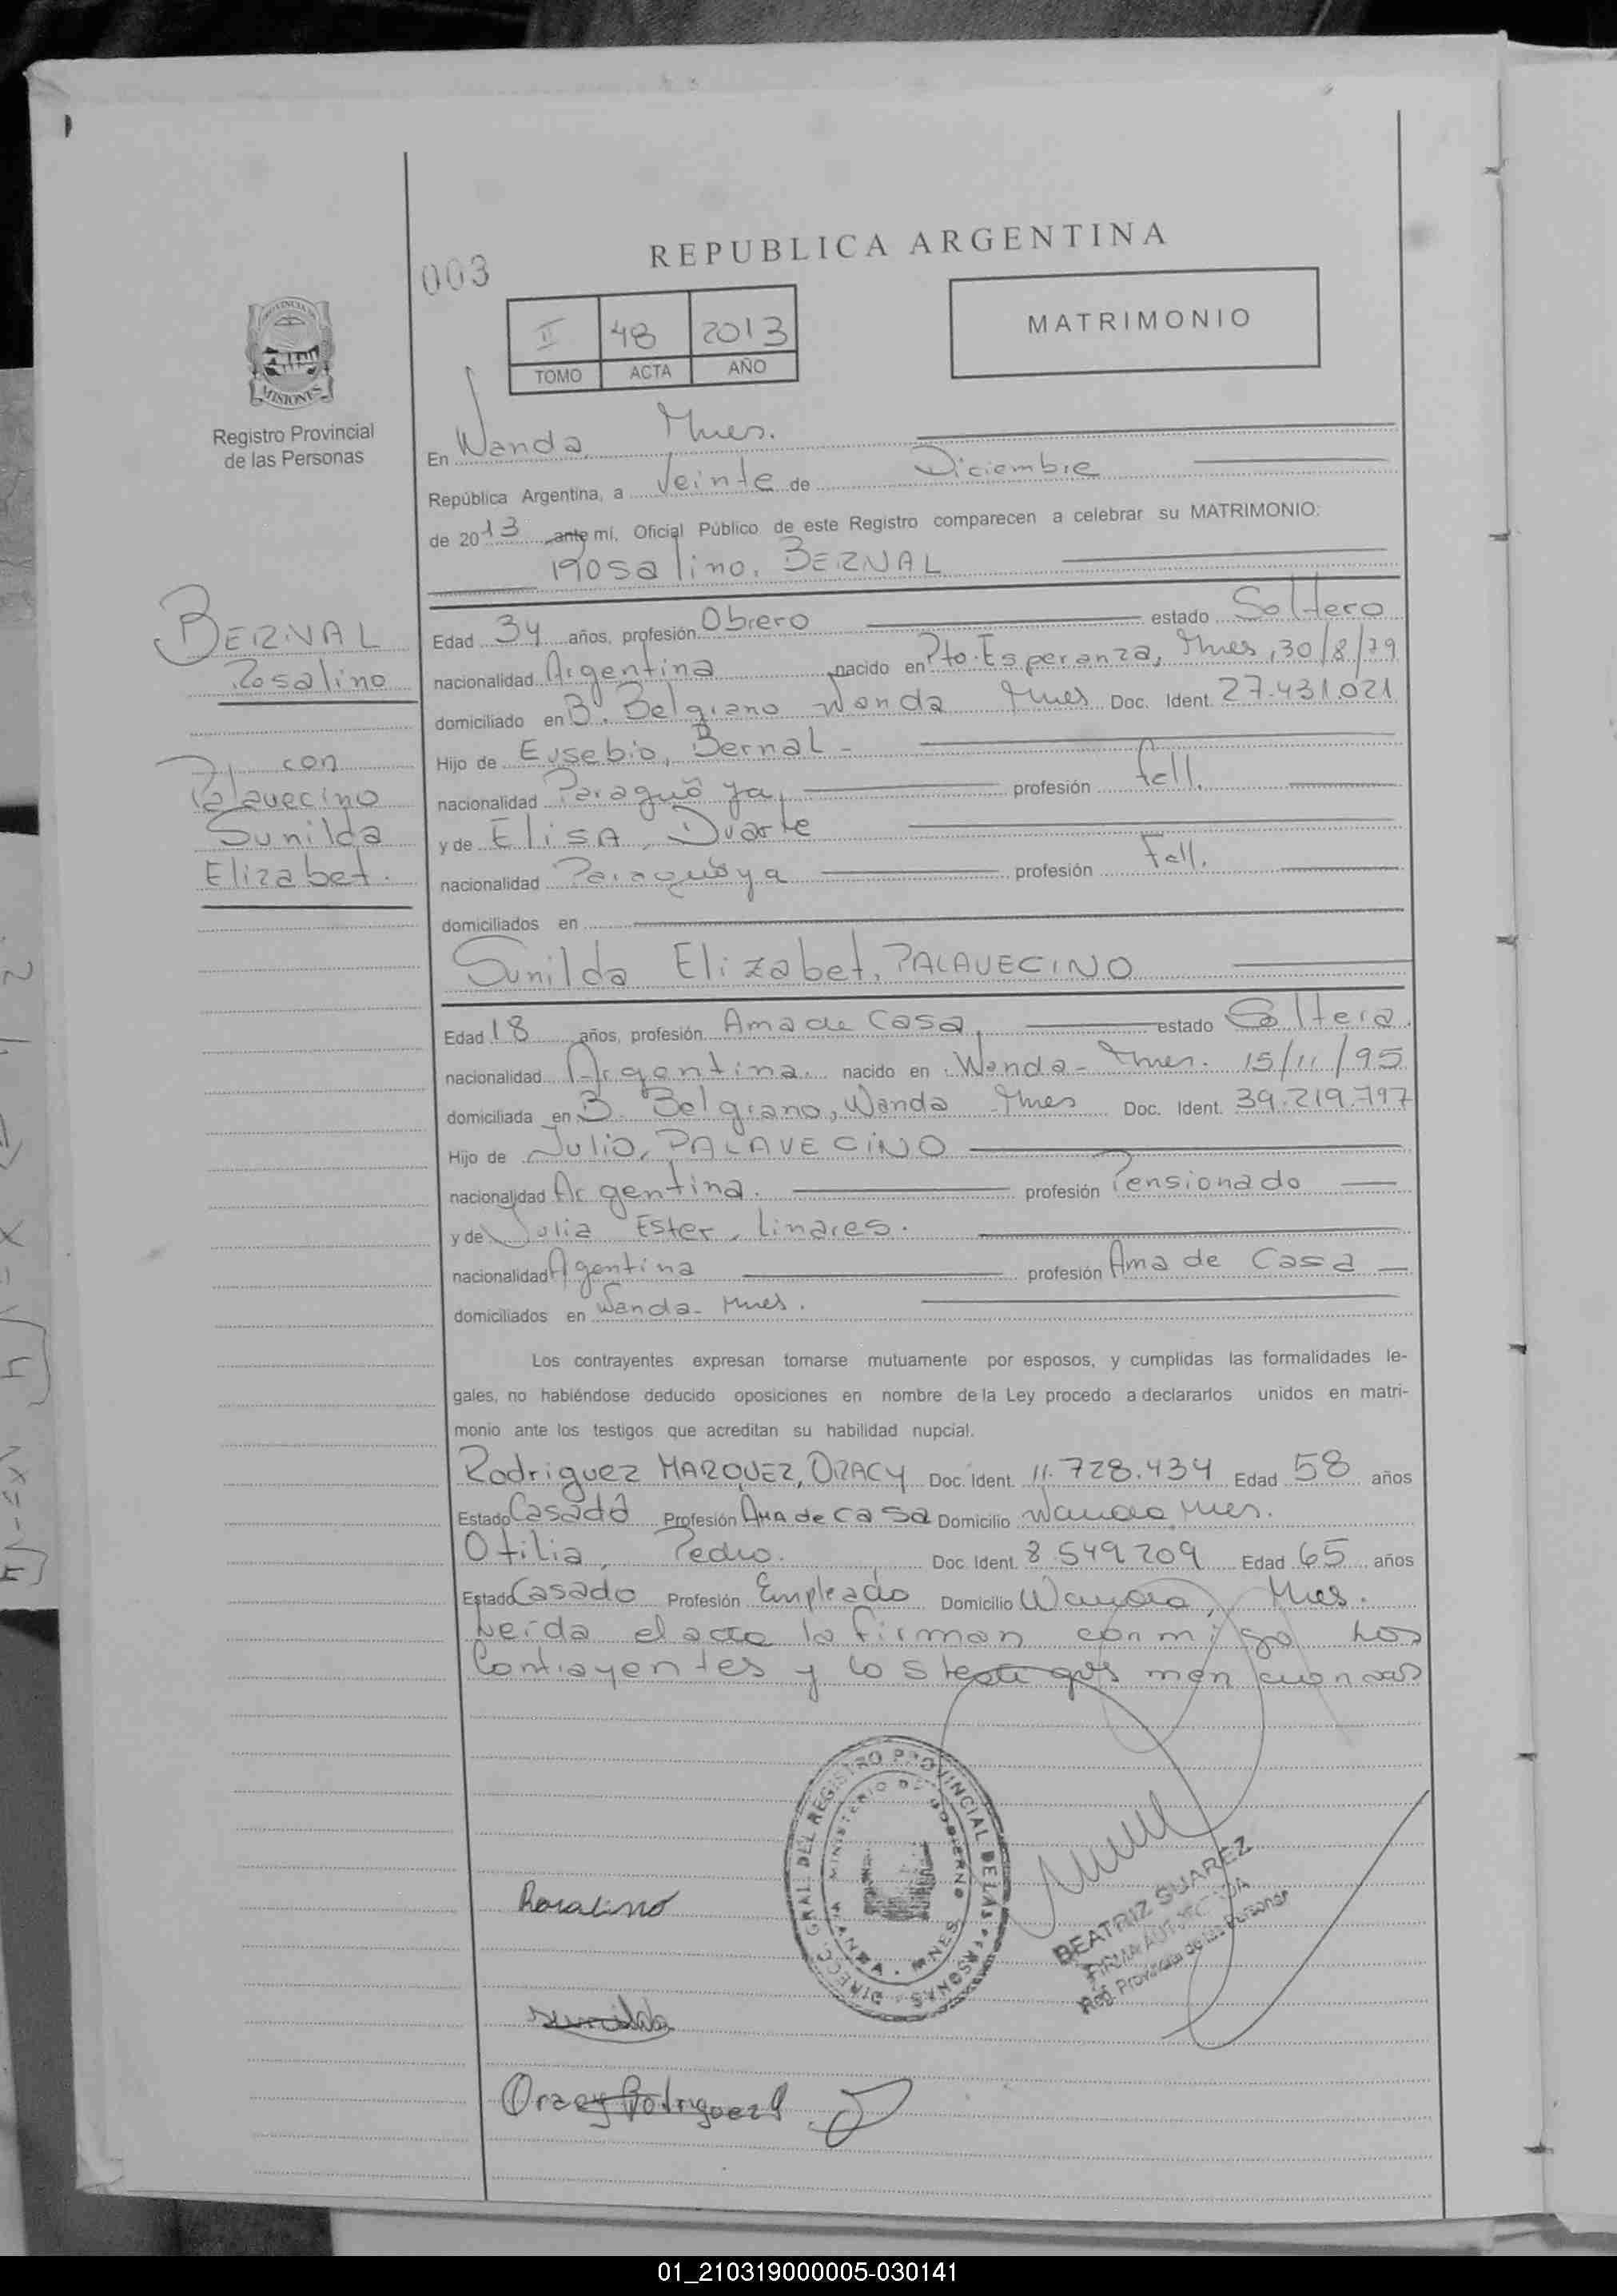 REPUBLICA ARGENTINA
003
II 48 2013
TOMO ACTA AÑO
MATRIMONIO
PROVINCIA DE
MISIONES
Registro Provincial
de las Personas
En Wanda, Mnes.
República Argentina, a Veinte de Diciembre
de 2013 ante mí, Oficial Público de este Registro comparecen a celebrar su MATRIMONIO:
Rosalino, BERNAL
BERNAL
Rosalino
con
Palavecino
Sunilda
Elizabet.
Edad 34 años, profesión Obrero estado Soltero
nacionalidad Argentina nacido en Pto. Esperanza, Mnes, 30/8/79
domiciliado en B. Belgrano Wanda Mnes Doc. Ident. 27.431.021
Hijo de Eusebio, Bernal -
nacionalidad Paraguaya profesión fall.
y de Elisa, Duarte
nacionalidad Paraguaya profesión Fall.
domiciliados en
Sunilda Elizabet, PALAVECINO
Edad 18 años, profesión Ama de Casa, estado Soltera.
nacionalidad Argentina. nacido en Wanda - Mnes. 15/11/95
domiciliada en B. Belgrano, Wanda Mnes Doc. Ident. 39.219.797
Hijo de Julio, PALAVECINO
nacionalidad Argentina. profesión Pensionado
y de Julia Ester, Linares.
nacionalidad Agentina profesión Ama de Casa
domiciliados en Wanda - Mnes.
Los contrayentes expresan tomarse mutuamente por esposos, y cumplidas las formalidades le-
gales, no habiéndose deducido oposiciones en nombre de la Ley procedo a declararlos unidos en matri-
monio ante los testigos que acreditan su habilidad nupcial.
Rodriguez MARQUEZ, ORACY Doc. Ident. 11.728.434 Edad 58 años
Estado Casada Profesión Ama de casa Domicilio Wanda Mnes.
Otilia, Pedro. Doc. Ident. 8.549209 Edad 65 años
Estado Casado Profesión Empleado Domicilio Wanda, Mnes.
Leída el acta la firman conmigo los
Contrayentes y los testigos
DIRECC. GRAL. DEL REGISTRO PROVINCIAL DE LAS PERSONAS
MINISTERIO DE GOBIERNO
WANDA - MNES
Rosalino
BEATRIZ SUAREZ
Reg. Provincial de las Personas
Sunilda
Oracy Rodriguez
01_210319000005-030141